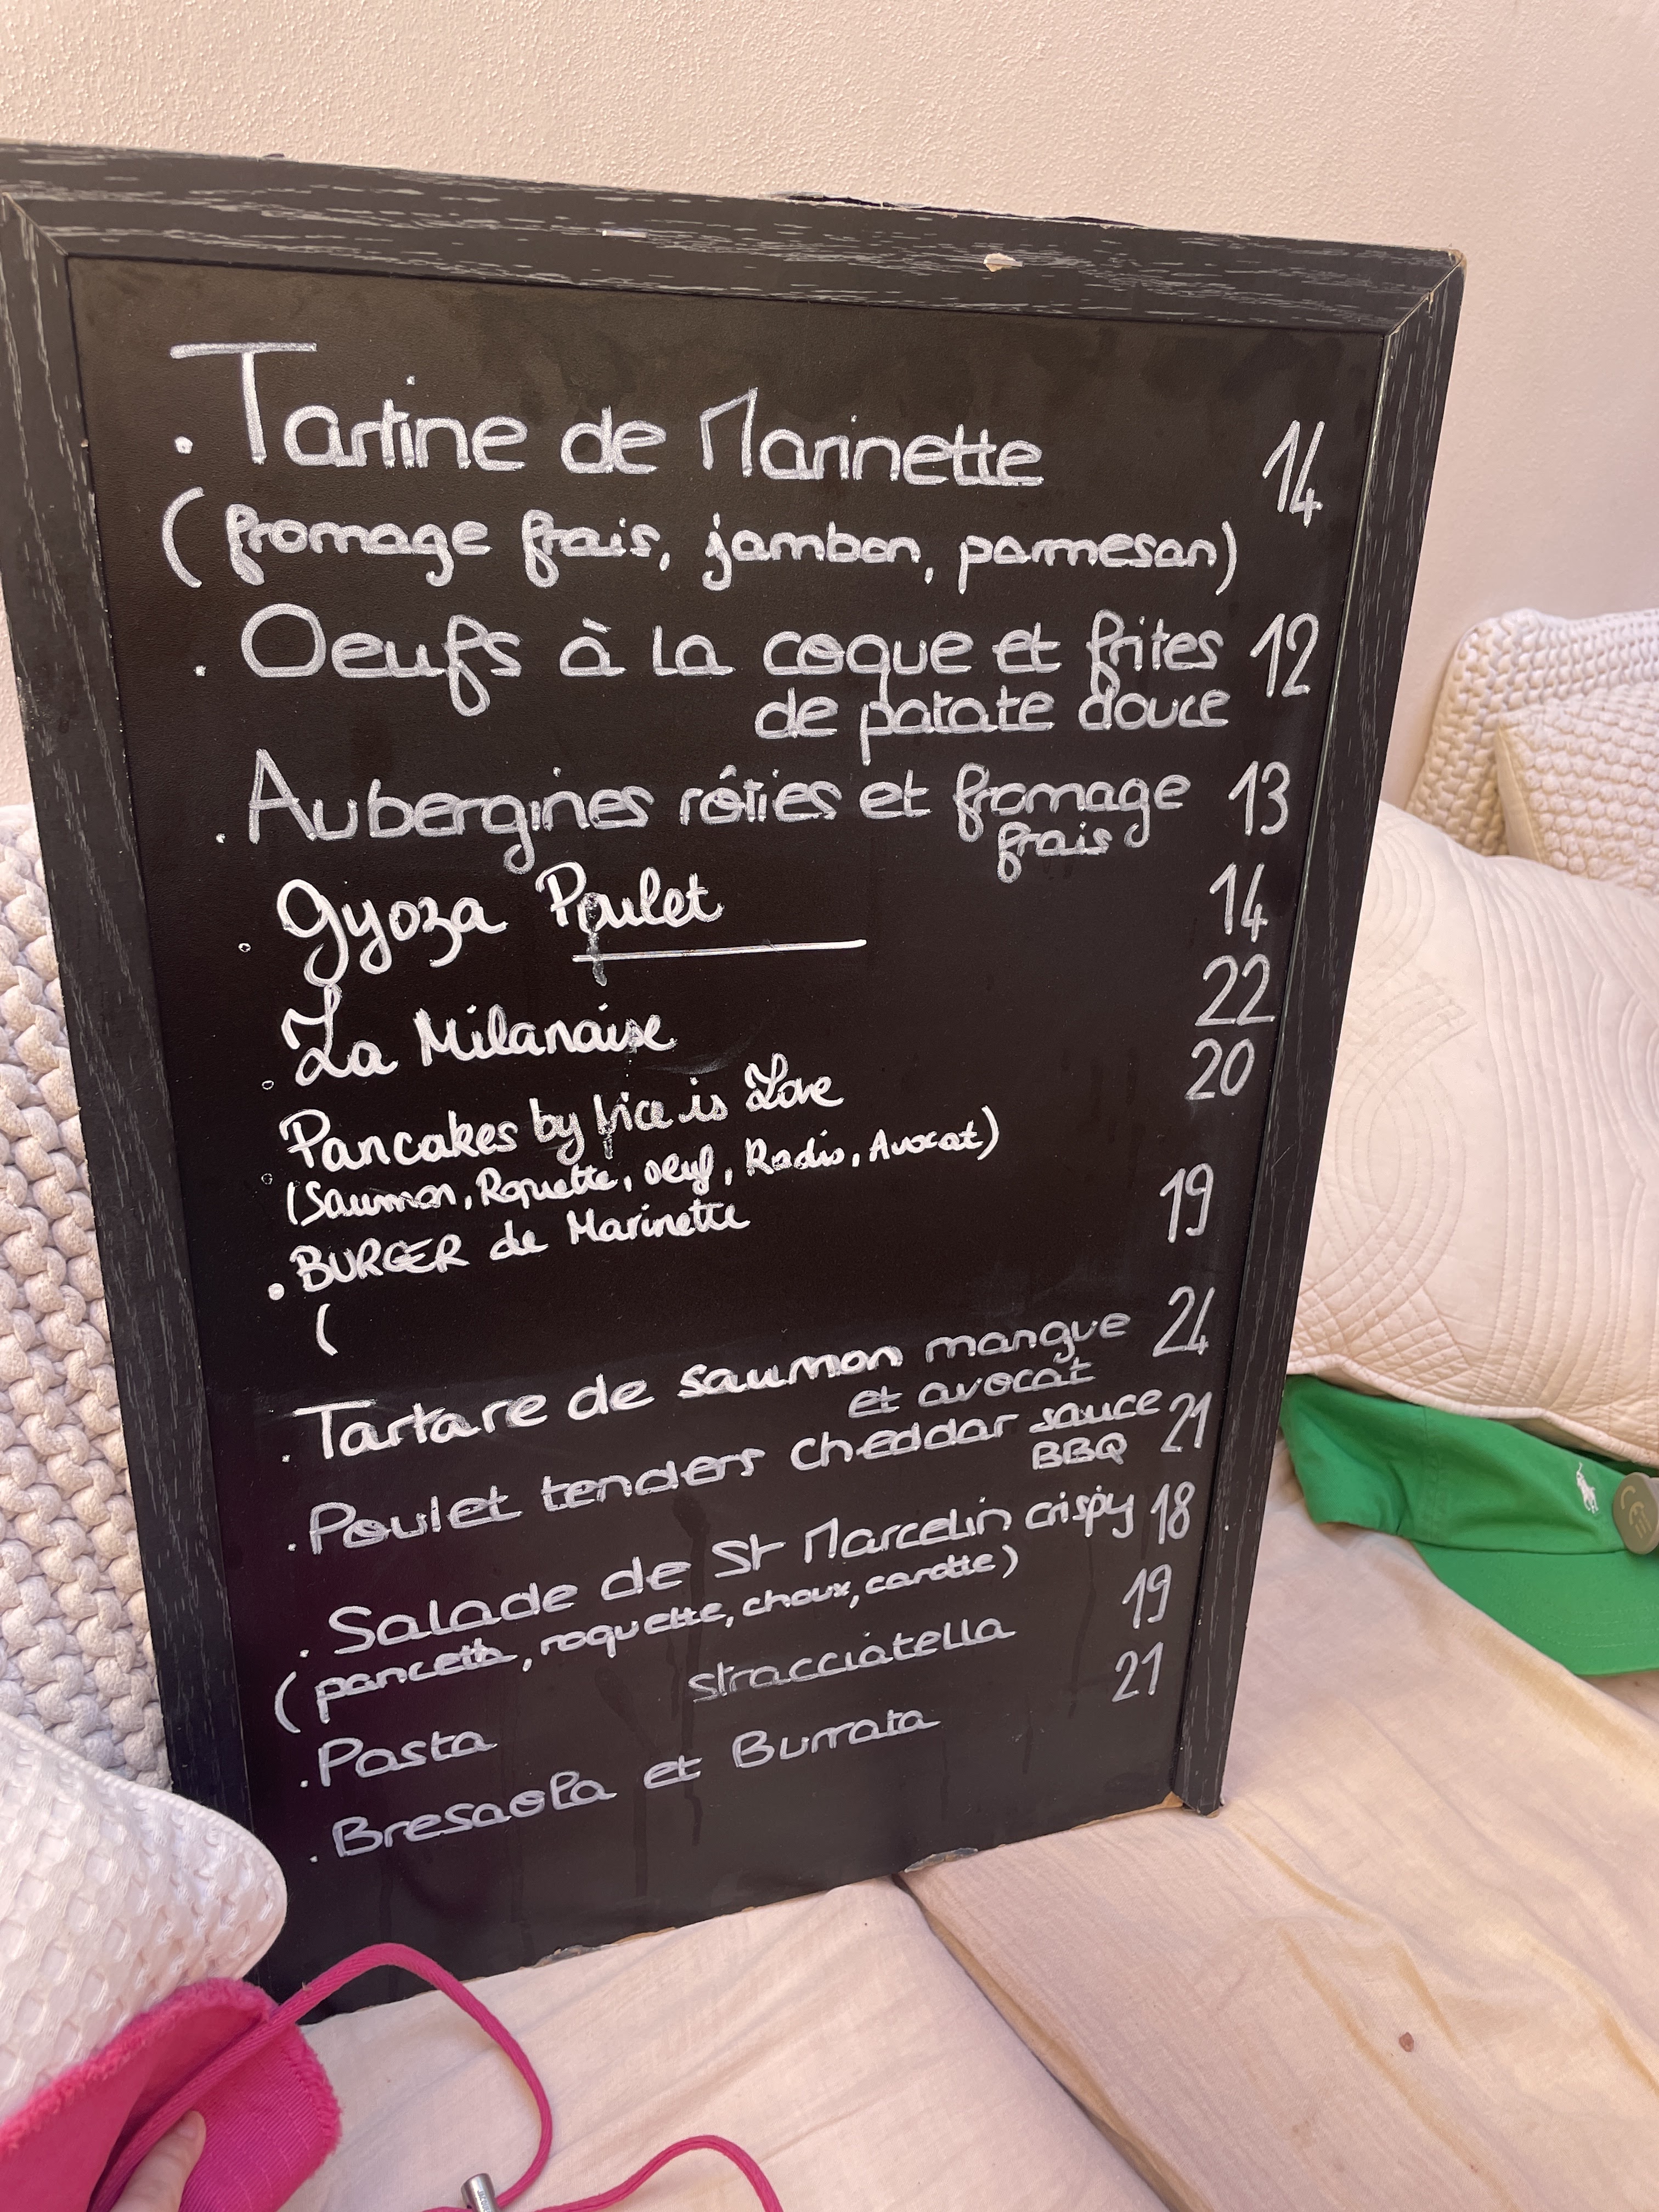 . Tartine de Marinette 14
( fromage frais, jambon, parmesan)
. Oeufs à la coque et frites 12
de patate douce
. Aubergines rôties et fromage 13
frais
. Gyoza Poulet 14
. La Milanaise 22
. Pancakes by Vice is Love 20
(Saumon, Roquette, oeuf, Radis, Avocat)
. BURGER de Marinette 19
(
. Tartare de saumon mangue 24
et avocat
. Poulet tenders cheddar sauce 21
BBQ
. Salade de St Marcelin crispy 18
( pancetta, roquette, choux, carotte)
. Pasta stracciatella 19
. Bresaola et Burrata 21